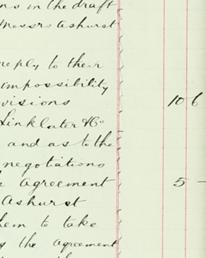 ns in the draft
Messrs Ashurst
reply to their
impossibility
visions 10 6
Linklater & Co
and as to the
negotiations
agreement 5 -
Ashurst
them to take
the agreement